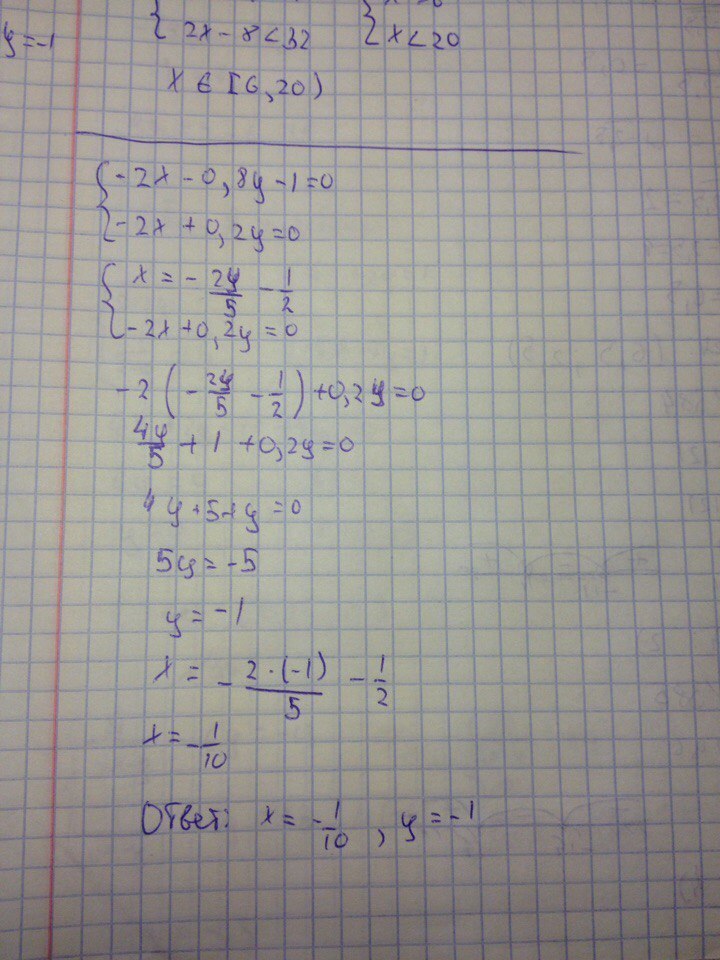 y = -1
{ 2x - 8 < 32 { x < 20
x ∈ [6, 20)
{ -2x - 0,8y - 1 = 0
-2x + 0,2y = 0
{ x = - 2y/5 - 1/2
-2x + 0,2y = 0
-2 ( - 2y/5 - 1/2 ) + 0,2y = 0
4y/5 + 1 + 0,2y = 0
4y + 5 + y = 0
5y = -5
y = -1
x = - 2·(-1)/5 - 1/2
x = - 1/10
Ответ: x = - 1/10 , y = -1